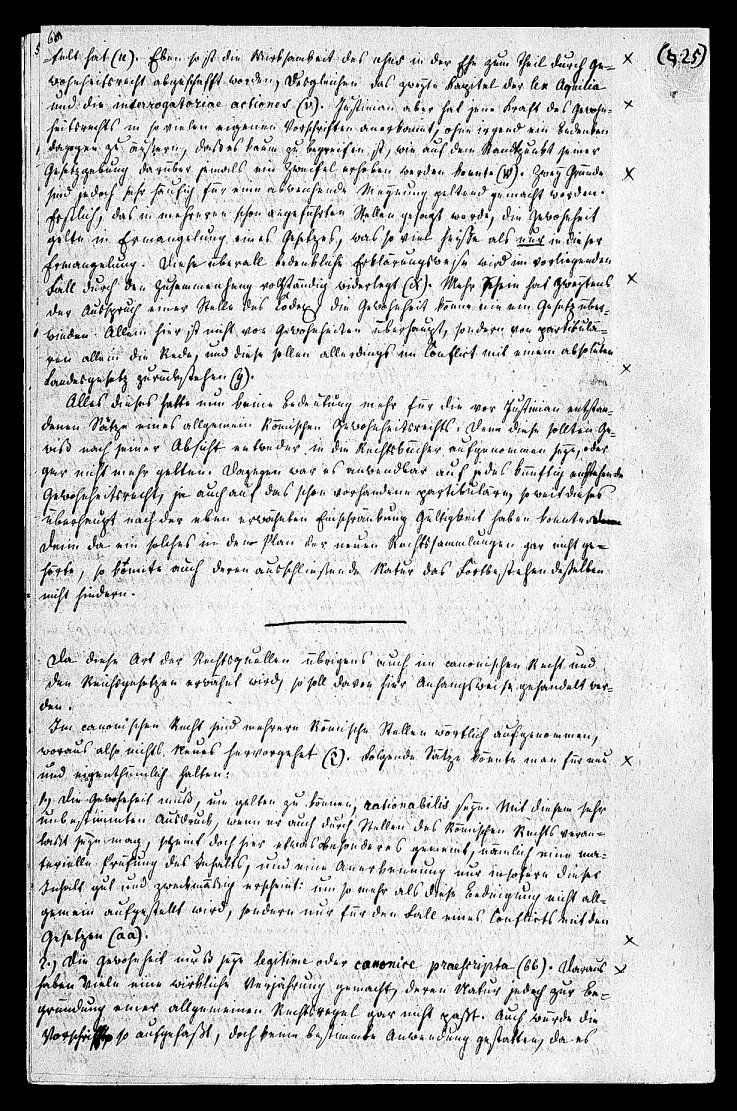 60
(§. 25)
fult hat (u). Eben so ist die Wirksamkeit des usus in der Ehe zum Theil durch Ge-
wohnheitsrecht abgeschafft worden, desgleichen das zweyte Kapitel der lex Aquilia
und die interrogatoriae actiones (v). Justinian aber hat jene Kraft des Gewohn-
heitsrechts in so vielen eigenen Vorschriften anerkannt, ohne irgend ein Bedenken
dagegen zu äußern, daß es kaum zu begreifen ist, wie auf dem Standpunkt seiner
Gesetzgebung darüber jemals ein Zweifel erhoben werden konnte (w). Zwey Gründe
sind jedoch sehr häufig für eine abweichende Meynung geltend gemacht worden.
Erstlich, daß in mehreren schon angeführten Stellen gesagt werde, die Gewohnheit
gelte in Ermangelung eines Gesetzes, was so viel heiße als nur in dieser
Ermangelung. Diese überall bedenkliche Erklärungsweise wird im vorliegenden
Fall durch den Zusammenhang vollständig widerlegt (x). Mehr Schein hat zweytens
der Ausspruch einer Stelle des Codex, die Gewohnheit könne nie ein Gesetz über-
winden. Allein hier ist nicht von Gewohnheiten überhaupt, sondern von particulä-
ren allein die Rede, und diese sollen allerdings im Conflict mit einem absoluten
Landesgesetz zurückstehen (y).
Alles dieses hatte nun keine Bedeutung mehr für die vor Justinian entstan-
denen Sätze eines allgemein Römischen Gewohnheitsrechts. Denn diese sollten Ge-
wiß nach seiner Absicht entweder in die Rechtsbücher aufgenommen seyn, oder
gar nicht mehr gelten. Dagegen war es anwendbar auf jedes künftig entstehende
Gewohnheitsrecht, ja auch auf das schon vorhandene particuläre, soweit dieses
überhaupt nach der eben erwähnten Einschränkung Gültigkeit haben konnte.
Denn da ein solches in dem Plan der neuen Rechtssammlungen gar nicht ge-
hörte, so konnte auch deren ausschließende Natur das Fortbestehen desselben
nicht hindern.
Da diese Art der Rechtsquellen übrigens auch im canonischen Recht und
den Reichsgesetzen erwähnt wird, so soll davon hier Anhangsweise gehandelt wer-
den.
Im canonischen Recht sind mehrere Römische Stellen wörtlich aufgenommen,
woraus also nichts Neues hervorgehet (z). Folgende Sätze könnte man für neu
und eigenthümlich halten:
1.) Die Gewohnheit muß, um gelten zu können, rationabilis seyn. Mit diesem sehr
unbestimmten Ausdruck, wenn er auch durch Stellen des Römischen Rechts veran-
laßt seyn mag, scheint doch hier etwas Besonderes gemeint, nämlich eine ma-
terielle Prüfung des Inhalts, und eine Anerkennung nur insofern dieser
Inhalt gut und zweckmäßig erscheint: um so mehr als diese Bedingung nicht all-
gemein aufgestellt wird, sondern nur für den Fall eines Conflicts mit den
Gesetzen (aa).
2.) Die Gewohnheit muß seyn legitime oder canonice praescripta (bb). Daraus
haben Viele eine wirkliche Verjährung gemacht, deren Natur jedoch zur Be-
gründung einer allgemeinen Rechtsregel gar nicht paßt. Auch würde die
Vorschrift so aufgefaßt, doch keine bestimmte Anwendung gestatten, da es